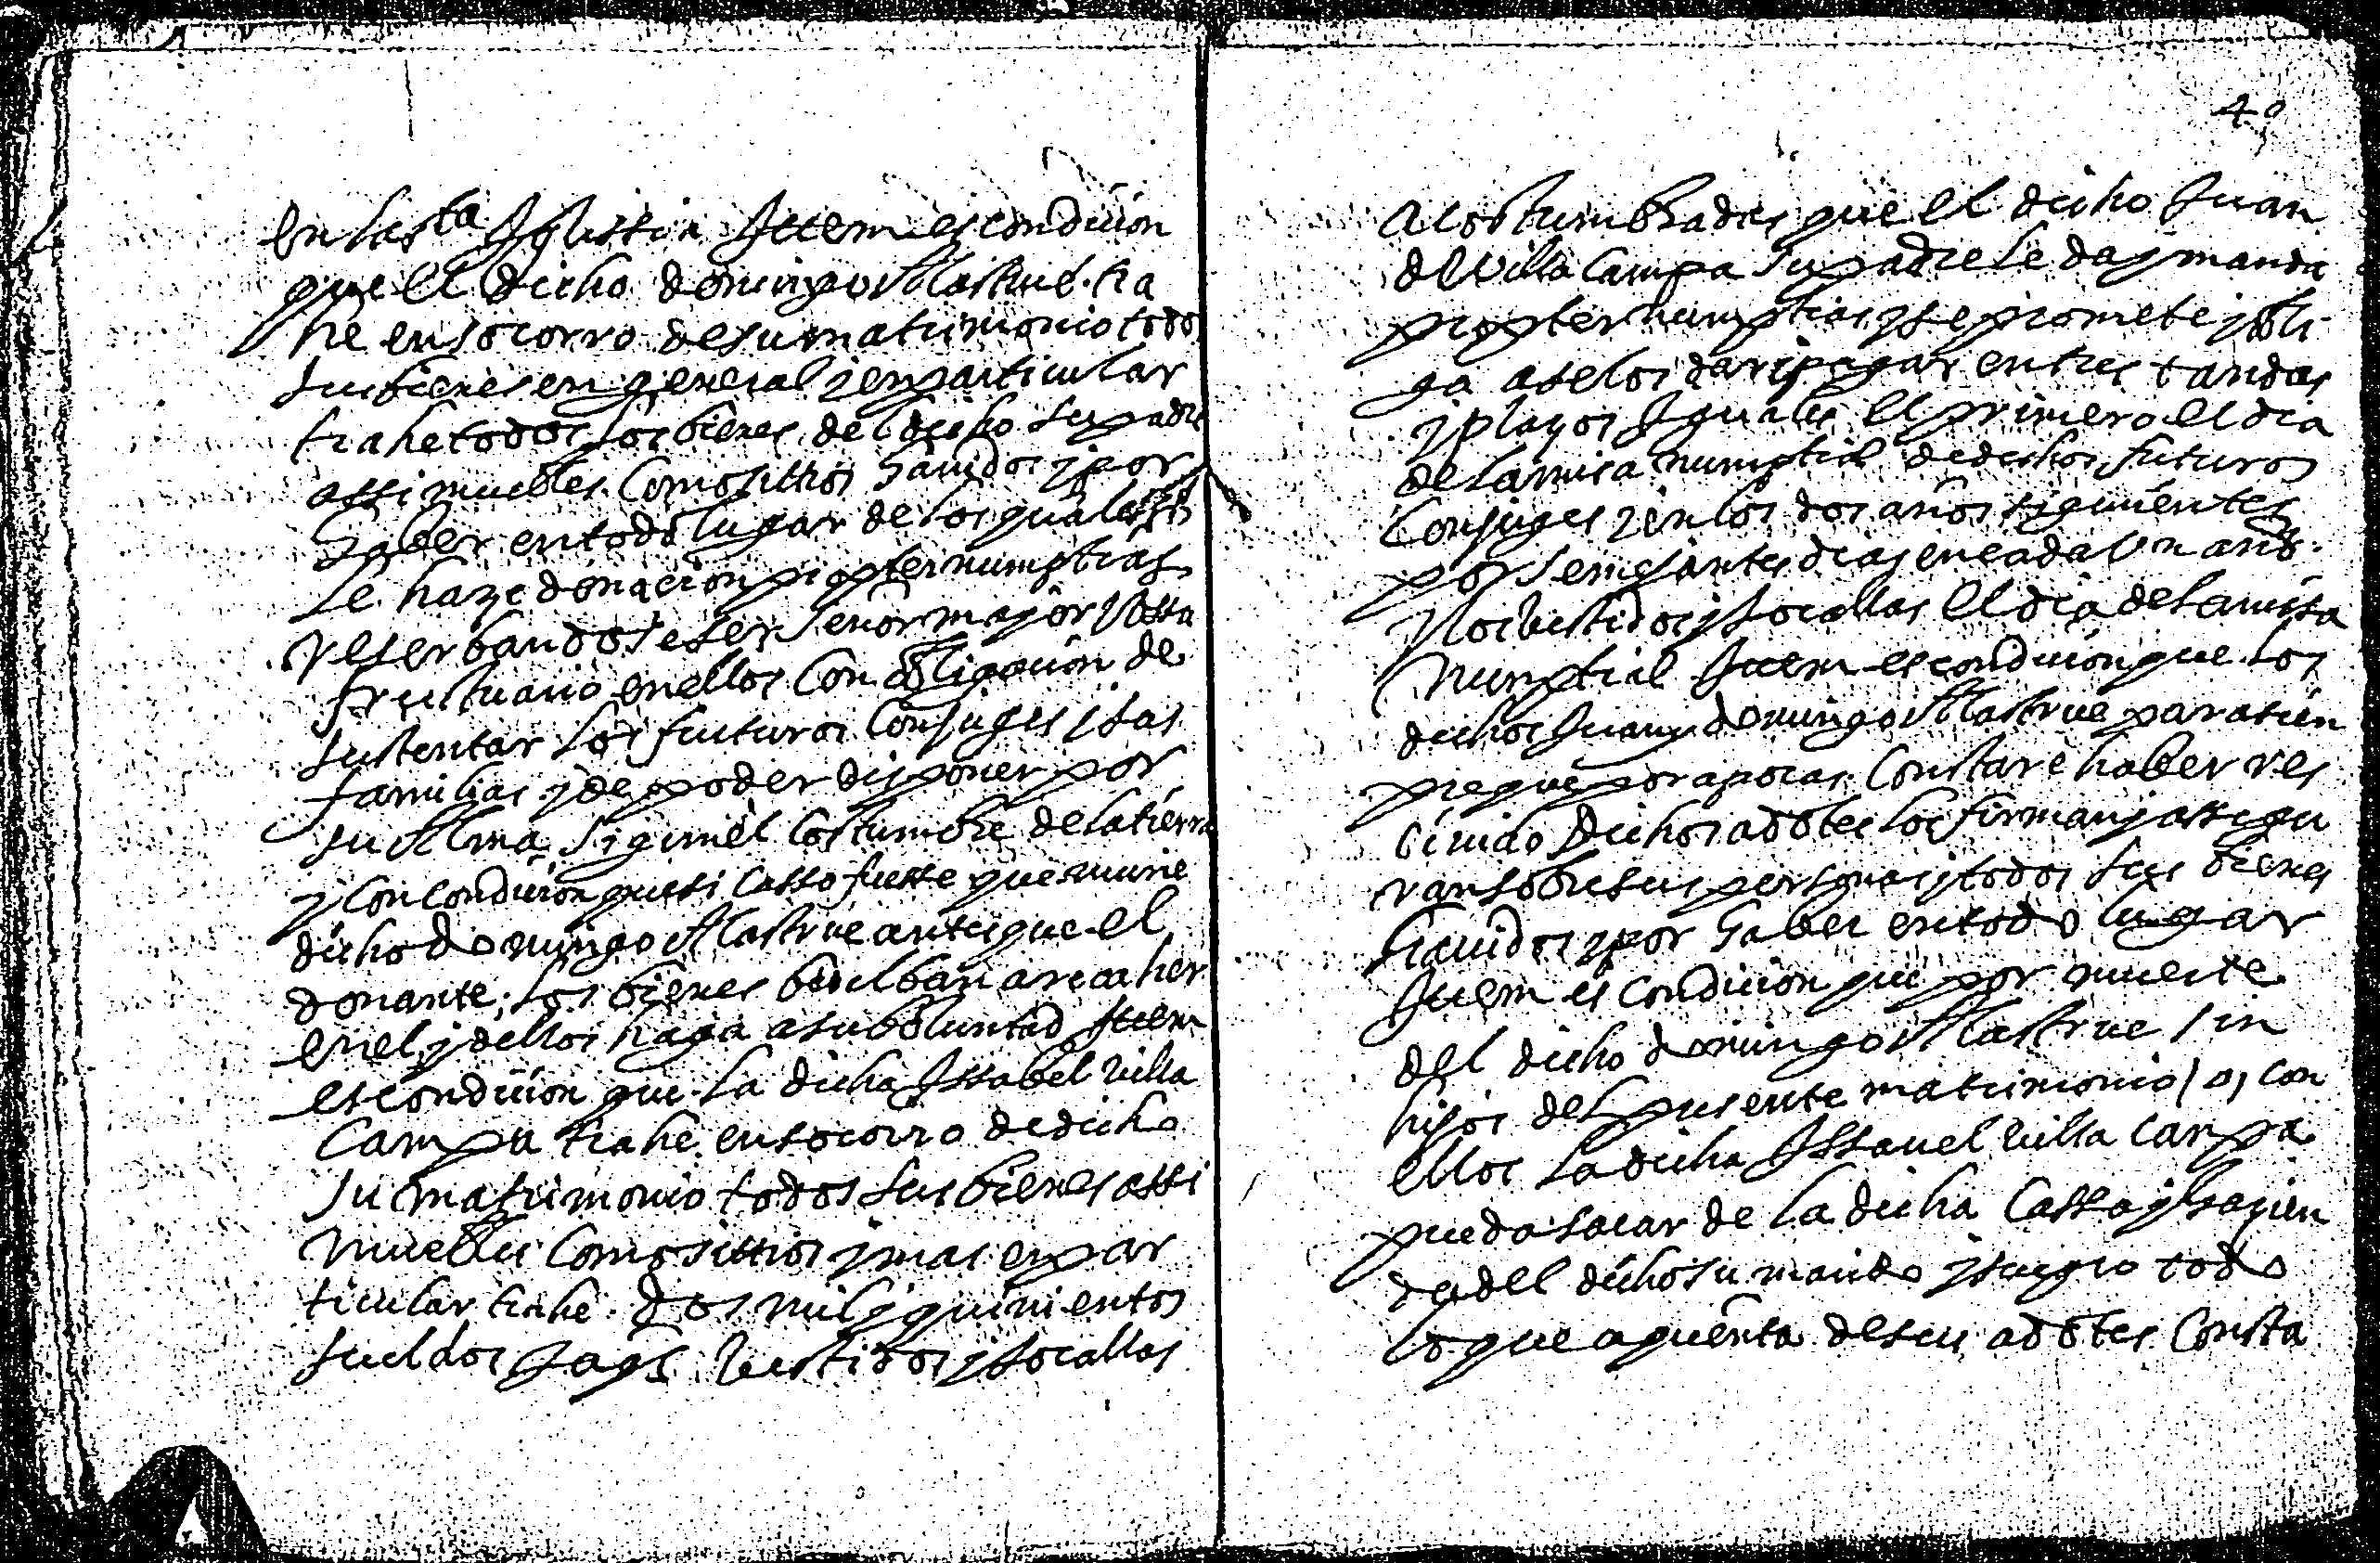 en la s.ta Iglessia Ittem es condicion
que el dicho domingo Alastrue tra
he en socorro de su matrimonio todos
sus bienes en general j en particular
trahe todos los bienes del dicho su padre
assi muebles como sittios hauidos j por
haber en todo lugar de los quales
le haze donacion propter numptias
reserbandose ser señor major vssu
fructuario en ellos con obligacion de
sustentar los futuros conjuges j sas
familias j de poder disponer por
su Alma sigun el costumbre de la tierra
j con condicion que si casso fuesse que murie
dicho domingo Alastrue antes que el
donante, los bienes buelban a recaher
en el j dellos haga a su boluntad Ittem
es condicion que la dicha Issabel villa
campa trahe en socorro de dicho
su matrimonio todos sus bienes assi
muebles como sittios j mas en par
ticular trahe dos mil j quinientos
sueldos jaqs vestidos j tocallas
40
acostumbrados que el dicho Juan
de villa campa su padre le da j manda
propter numptias j se promete j obli
ga a se los dar j pagar en tres tandas
j plaços Iguales el primero el dia
de la misa numptial de dichos futuros
conjuges j en los dos años siguientes
por semejantes dias en cada vn año
j los bestidos j tocallas el dia de la missa
numptial Ittem es condicion que los
dichos Juan j domingo Alastrue para tien
pre que por apocas constare haber res
ciuido dichos adotes los firman j assigu
ran sobre sus personas j todos sus bienes
hauidos j por haber en todo lugar
Ittem es condicion que por muerte
del dicho domingo Alastrue sin
hijos del presente matrimonio, o, con
ellos la dicha Issauel villa campa
pueda sacar de la dicha cassa j hazien
da del dicho su marido j suegro todo
lo que a quenta de sus adotes consta